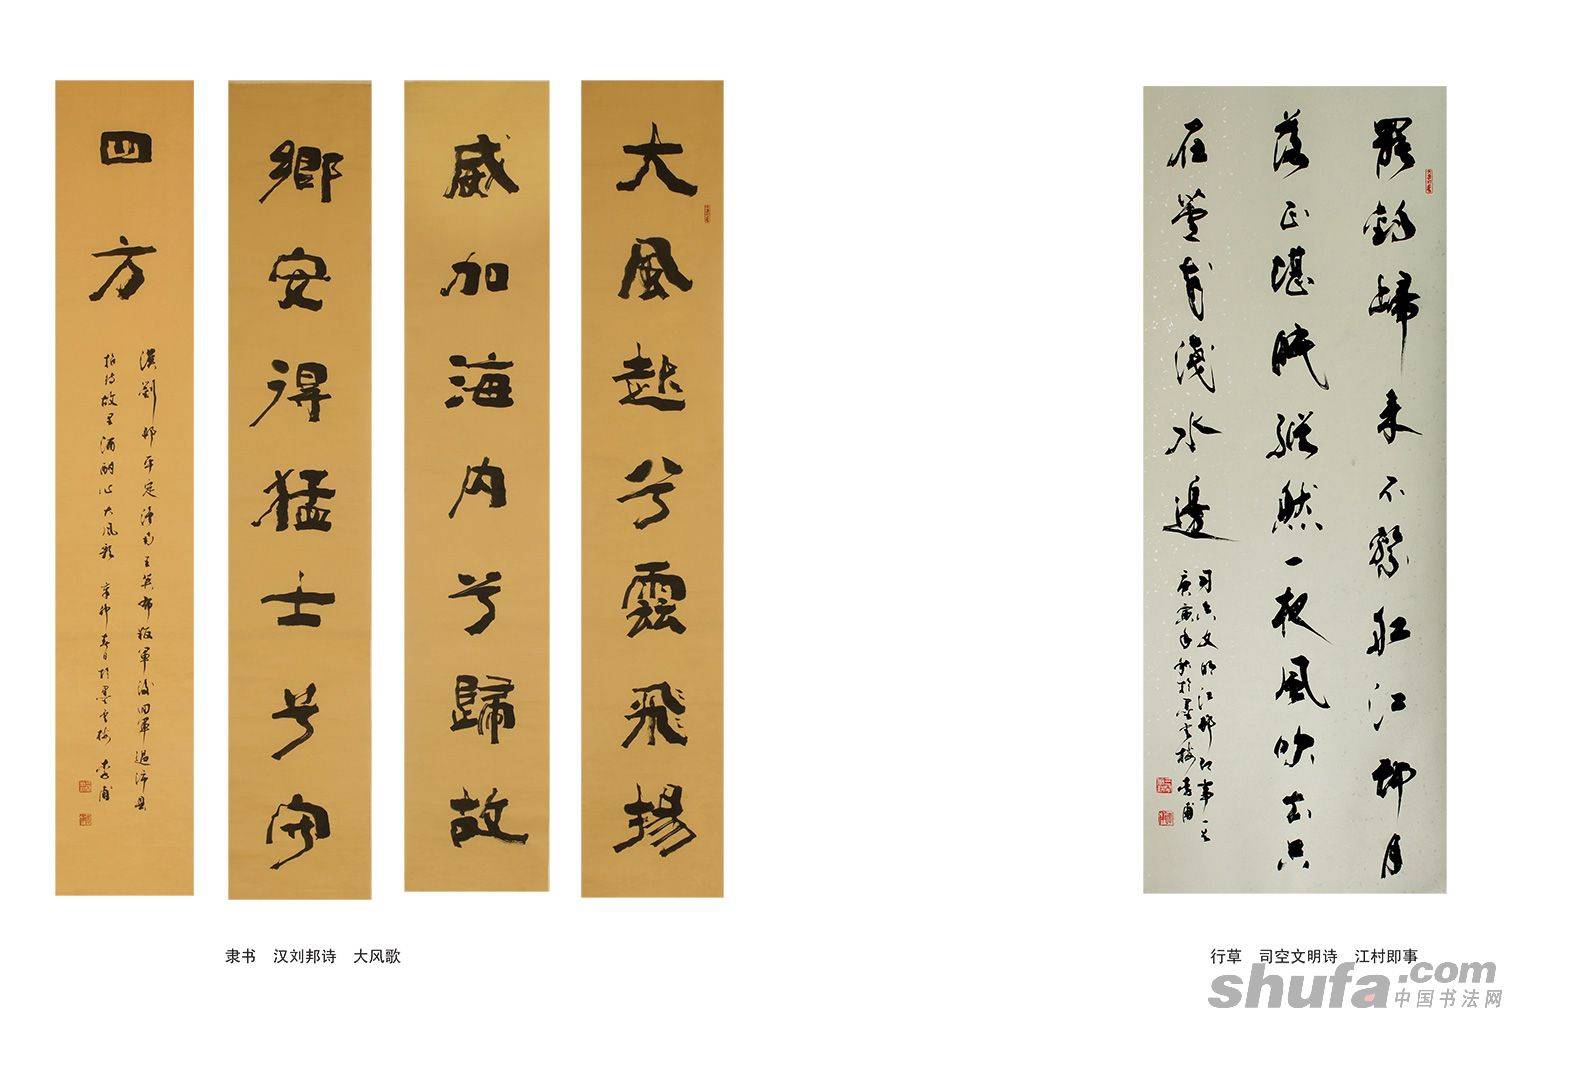 大風起兮雲飛揚
威加海内兮歸故
鄉安得猛士兮守
四方
漢劉邦平定淮南王英布叛軍後回軍過沛县
招待故里酒酣作大風歌 辛卯春日於墨雲楼
隶书 汉刘邦诗 大风歌
罷釣歸來不繫船江邨月
落正堪眠縱然一夜風吹去只
在蘆花淺水邊
司空文明江邨即事一首
庚寅年秋於墨雲楼
行草 司空文明诗 江村即事
shufa.com
中国书法网